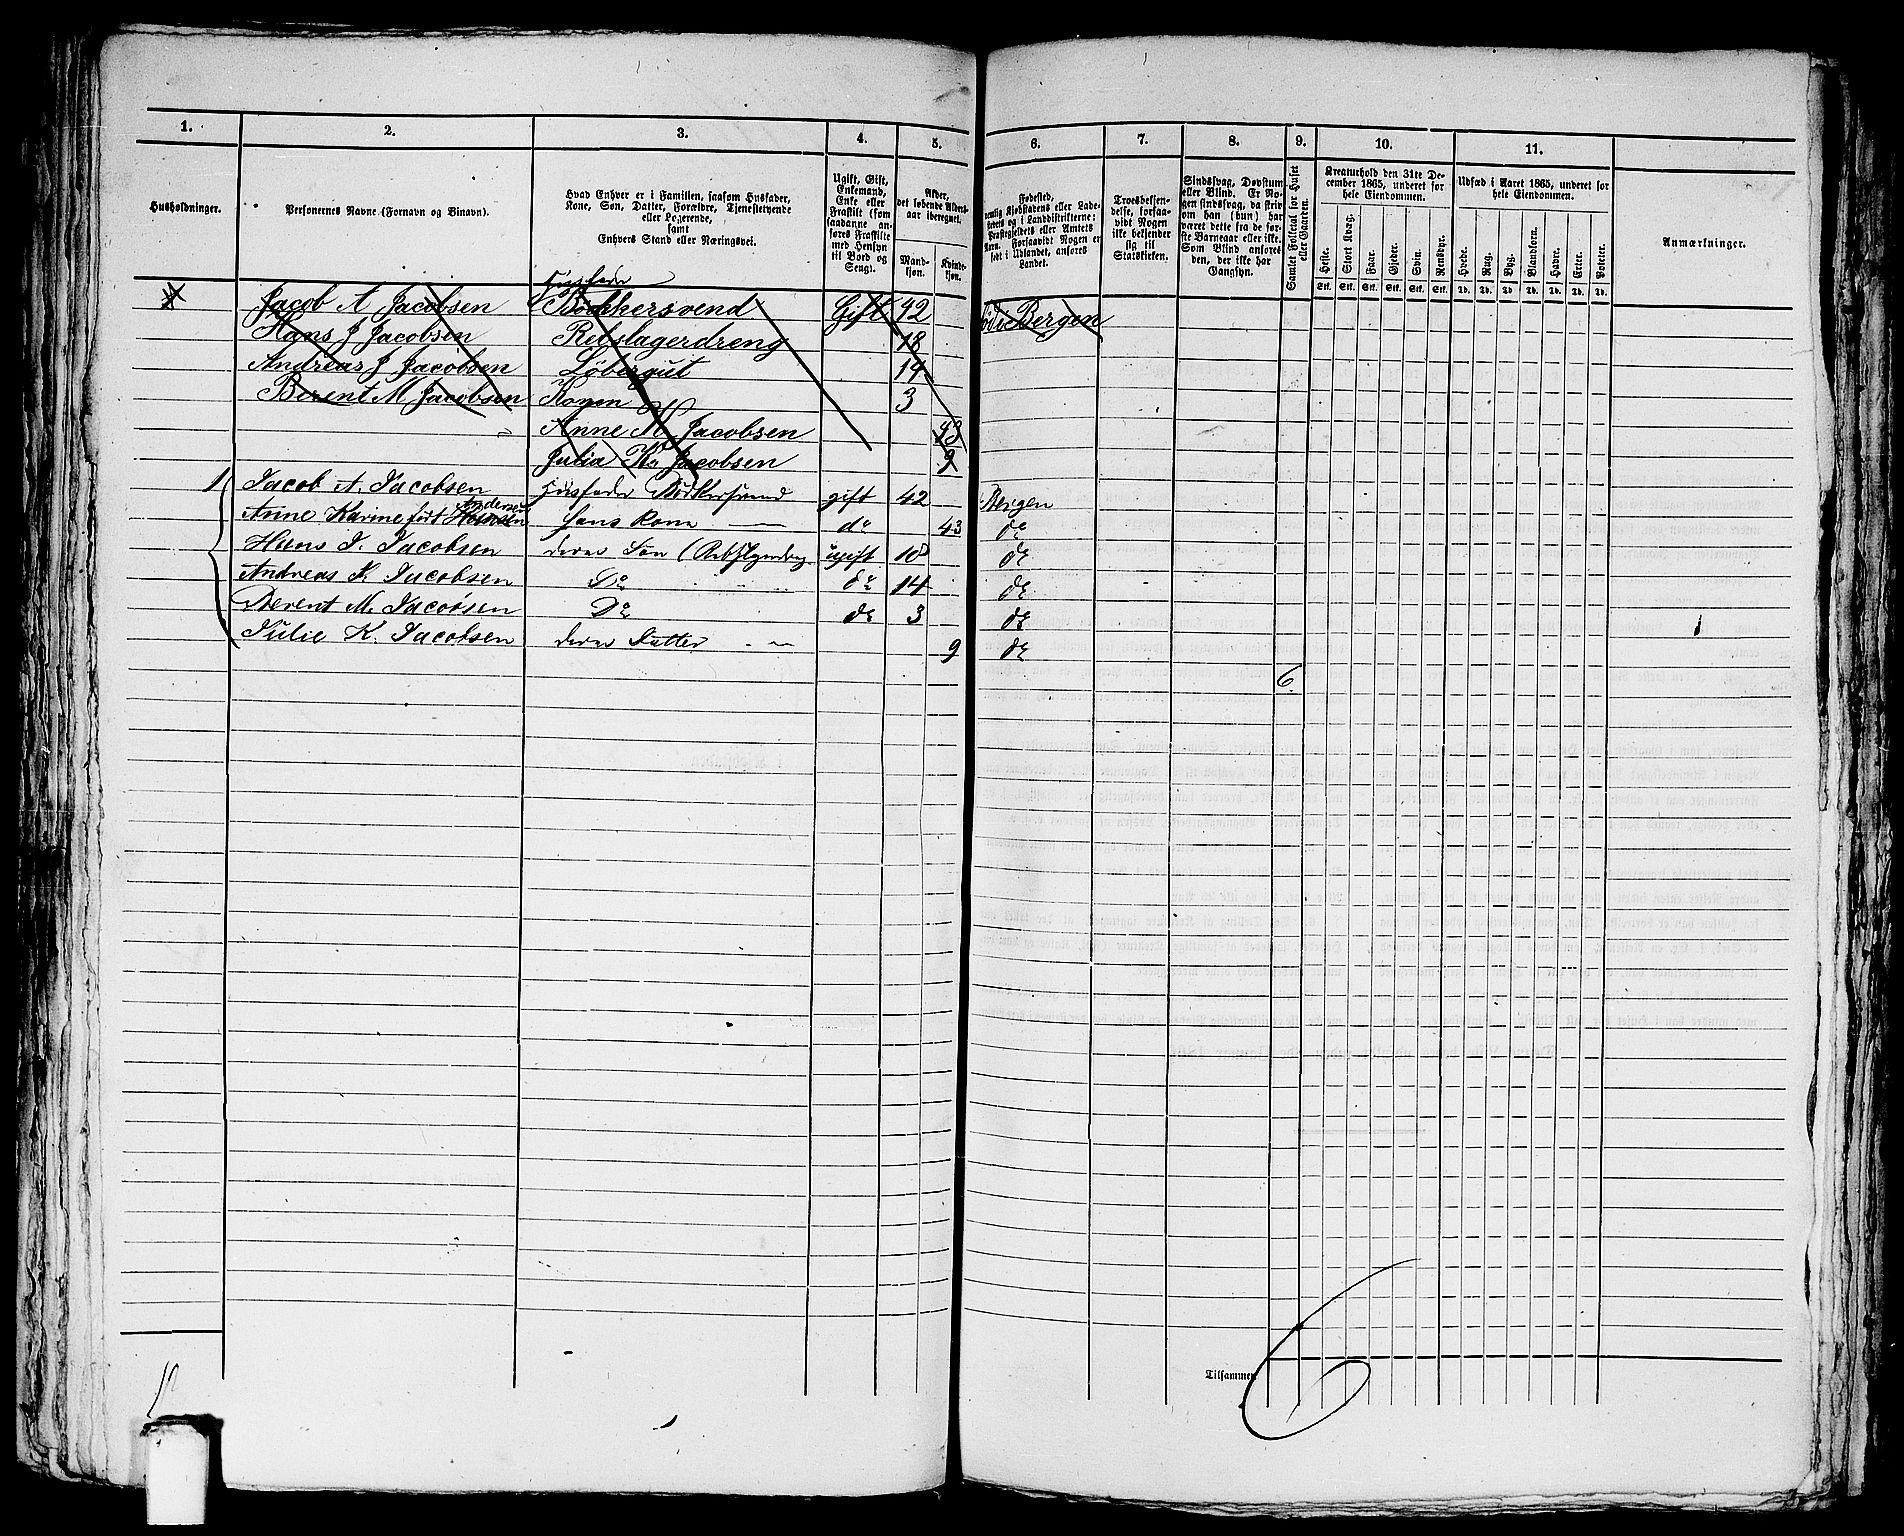 1. 2. 3. 4. 5. 6. 7. 8. 9. 10. 11.
Husholdninger.
Personernes Navne (Fornavn og Binavn).
Hvad Enhver er i Familien, saasom Husfader,
Kone, Søn, Datter, Forældre, Tjenestetyende
eller Logerende,
samt
Enhvers Stand eller Næringsvei.
Ugift, Gift,
Enkemand,
Enke eller
Fraskilt (som
saadanne an-
føres Fraskilte
med Hensyn
til Bord og
Seng).
Alder,
det løbende Alders-
aar iberegnet.
Mand-
kjøn.
Kvinde-
kjøn.
Fødested,
nemlig Kjøbstadens eller Lade-
stedets og i Landdistrikterne:
Præstegjeldets eller Amtets
Navn. Forsaavidt Nogen er
født i Udlandet, anføres
Landet.
Troesbekjen-
delse, forsaa-
vidt Nogen
ikke bekjender
sig til
Statskirken.
Sindssvag, Døvstum
eller Blind. Er No-
gen sindssvag, da skriv
om han (hun) har
været dette fra de før-
ste Barneaar eller ikke.
Som Blind anføres
den, der ikke har
Gangsyn.
Samlet Folketal for Huset
eller Gaarden.
Kreaturhold den 31te De-
cember 1865, underet for
hele Eiendommen.
Heste. Stort Kvæg. Faar. Gjeder. Svin. Rensdyr.
Stk. Stk. Stk. Stk. Stk. Stk.
Udsæd i Aaret 1865, underet for
hele Eiendommen.
Hvede. Rug. Byg. Blandkorn. Havre. Erter. Poteter.
Td. Td. Td. Td. Td. Td. Td.
Anmærkninger.
Husfader
Jacob A Jacobsen Bødkersvend Gift 42 Bergen
Hans J Jacobsen Rebslagerdreng 18
Andreas J Jacobsen Løbergut 14
Berent M Jacobsen Konen 3
Anne K Jacobsen 43
Julia K Jacobsen 9
1 Jacob A. Jacobsen Husfader Bødkersvend gift 42 Bergen
Andersen
Anne Karine født hans Kone do 43 do
Hans J. Jacobsen deres Søn ugift 18 do
Andreas J. Jacobsen Do do 14 do
Berent M. Jacobsen Do do 3 do
Julie K. Jacobsen deres Datter 9 do
6
Tilsammen
6